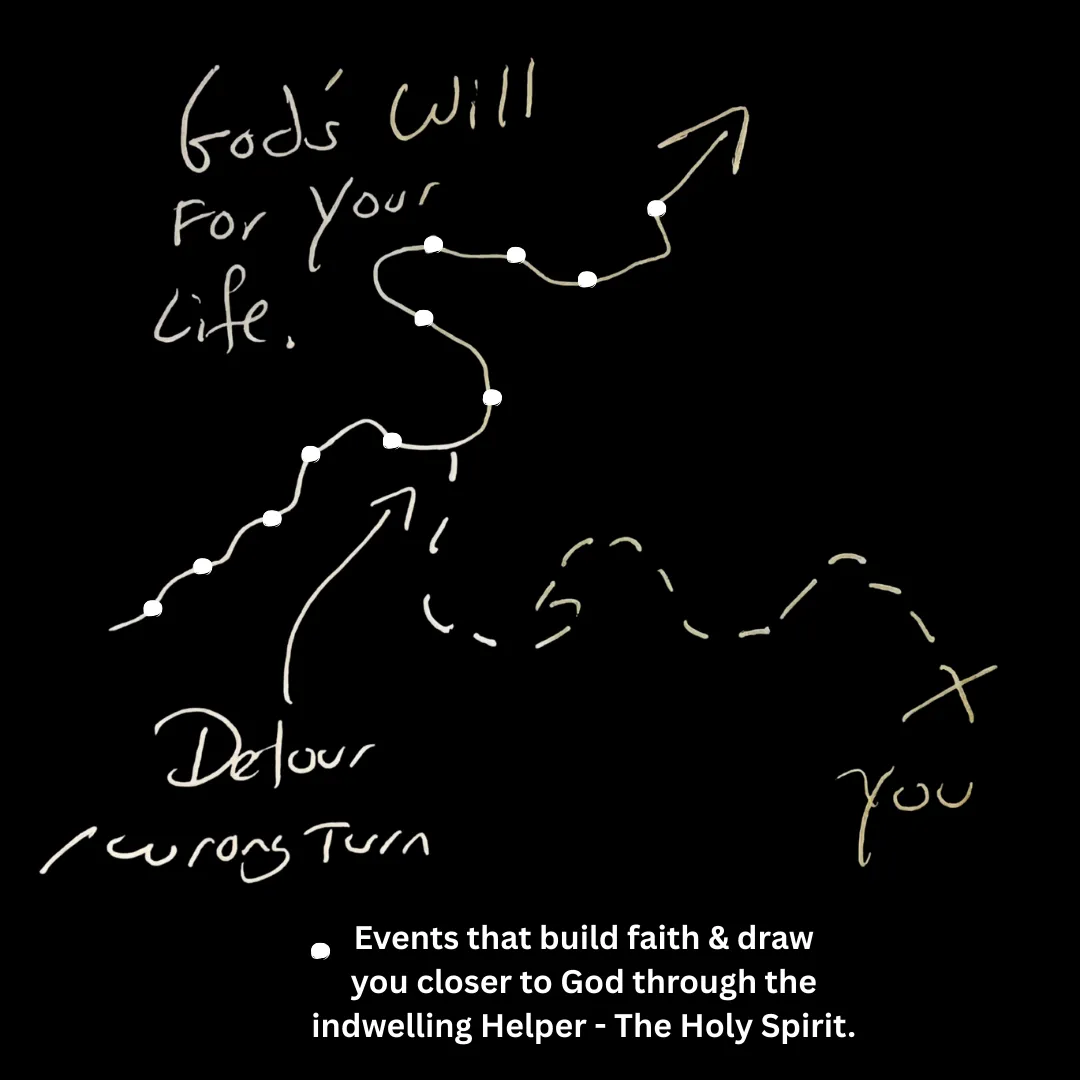 God's Will
For Your
Life.
Detour
/ Wrong Turn
You
Events that build faith & draw
you closer to God through the
indwelling Helper - The Holy Spirit.